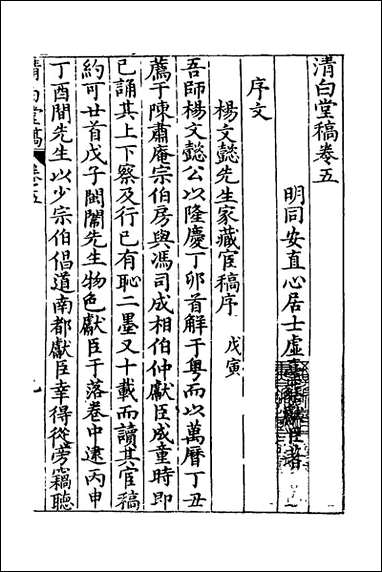 清白堂稿卷五
明同安直心居士虛臺蔡獻臣著
序文
楊文懿先生家藏宦稿序 戊寅
吾師楊文懿公以隆慶丁卯首解于粵而以萬曆丁丑
薦于陳肅庵宗伯房與馮司成相伯仲獻臣成童時即
已誦其上下察及行已有恥二墨又十載而讀其宦稿
約可廿首戊子閩闈先生物色獻臣于落卷中逮丙申
丁酉間先生以少宗伯倡道南都獻臣幸得從旁竊聽
清白堂稿 卷五